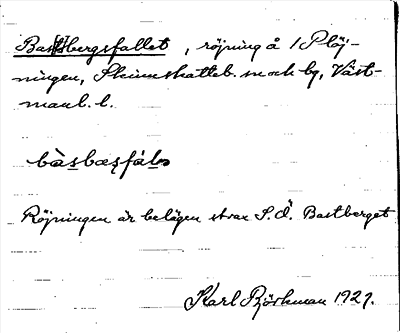 Bastbergsfallet, röjning å 1 Plöj-
ningen, Skinnskatteb. sn och bg, Väst-
manl. l.
bàsbæʂfál
Röjningen är belägen strax S.Ö. Bastberget
Karl Björkman 1929.